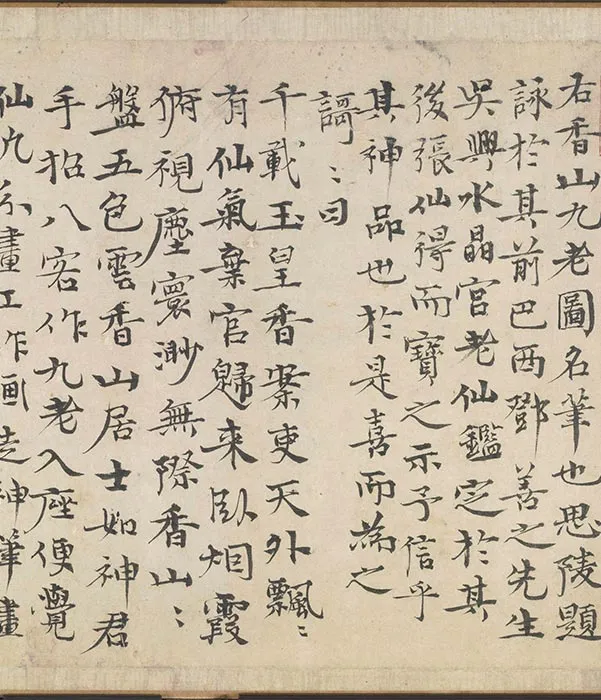 右香山九老圖名筆也思陵題
詠於其前巴西鄧善之先生
吳興水晶宮老仙鑑定於其
後張仙得而寶之示予信乎
其神品也於是喜而為之
謌〻曰
千載玉皇香案吏天外飄〻
有仙氣棄官歸来臥烟霞
俯視塵寰渺無際香山〻
盤五色雲香山居士如神君
手招八客作九老入座便覺
仙九尔畫工作画走神筆畫